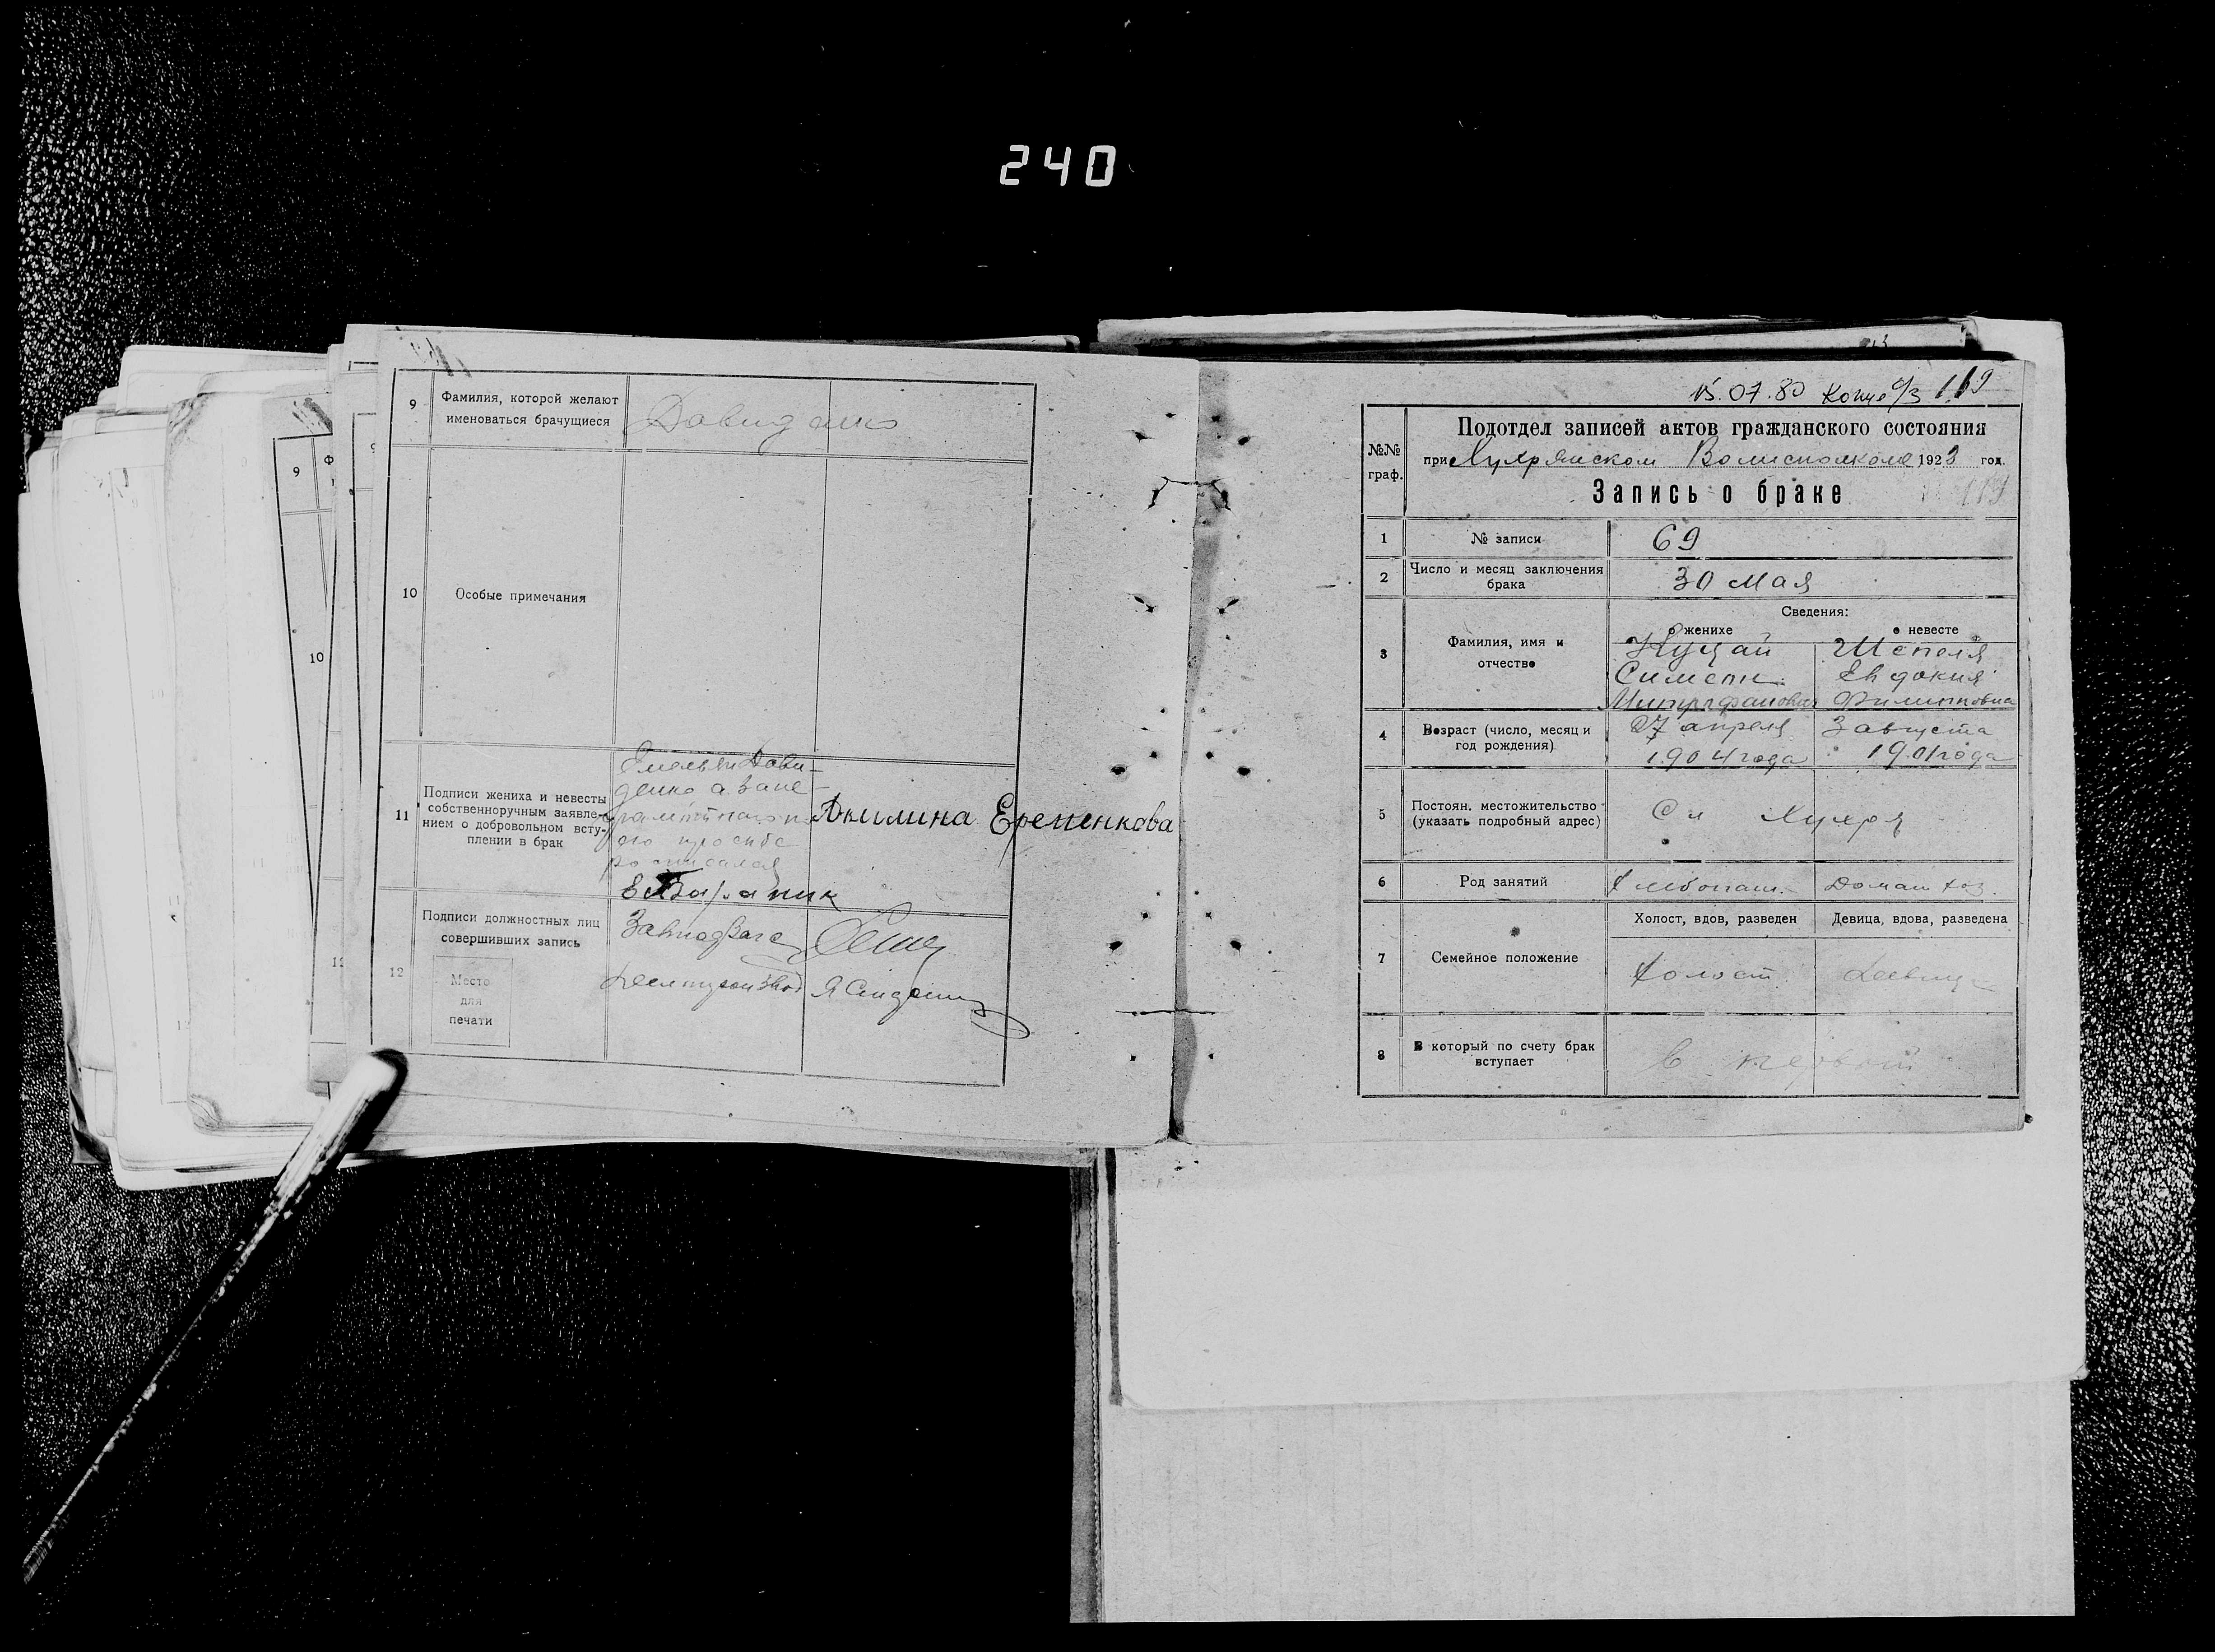 240
9
Фамилия, которой желают
именоваться брачущиеся
Давиденко
10
Особые примечания
11
Подписи жениха и невесты
собственноручным заявле-
нием о добровольном всту-
плении в брак
Емельян Дави-
денко а за не-
грамотного по
его просьбе
росписался
Е Тараник
Акилина Еременкова
12
Подписи должностных лиц
совершивших запись
Место
для
печати
9
Ф
10
15.07.80
119
№№
граф.
Подотдел записей актов гражданского состояния
при Хухрянском Волисполкоме 1923 год.
Запись о браке
119
1
№ записи
69
2
Число и месяц заключения
брака
30 Мая
Сведения:
о женихе
о невесте
3
Фамилия, имя и
отчество
Симеон
Митрофанович
Евдокия
Филипповна
4
Возраст (число, месяц и
год рождения)
27 апреля
1904 года
3 августа
1901 года
5
Постоян. местожительство
(указать подробный адрес)
Сл Хухря
6
Род занятий
Хлебопаш.
Домаш хоз.
7
Семейное положение
Холост, вдов, разведен
Девица, вдова, разведена
Холост
Девица
8
В который по счету брак
вступает
в первый